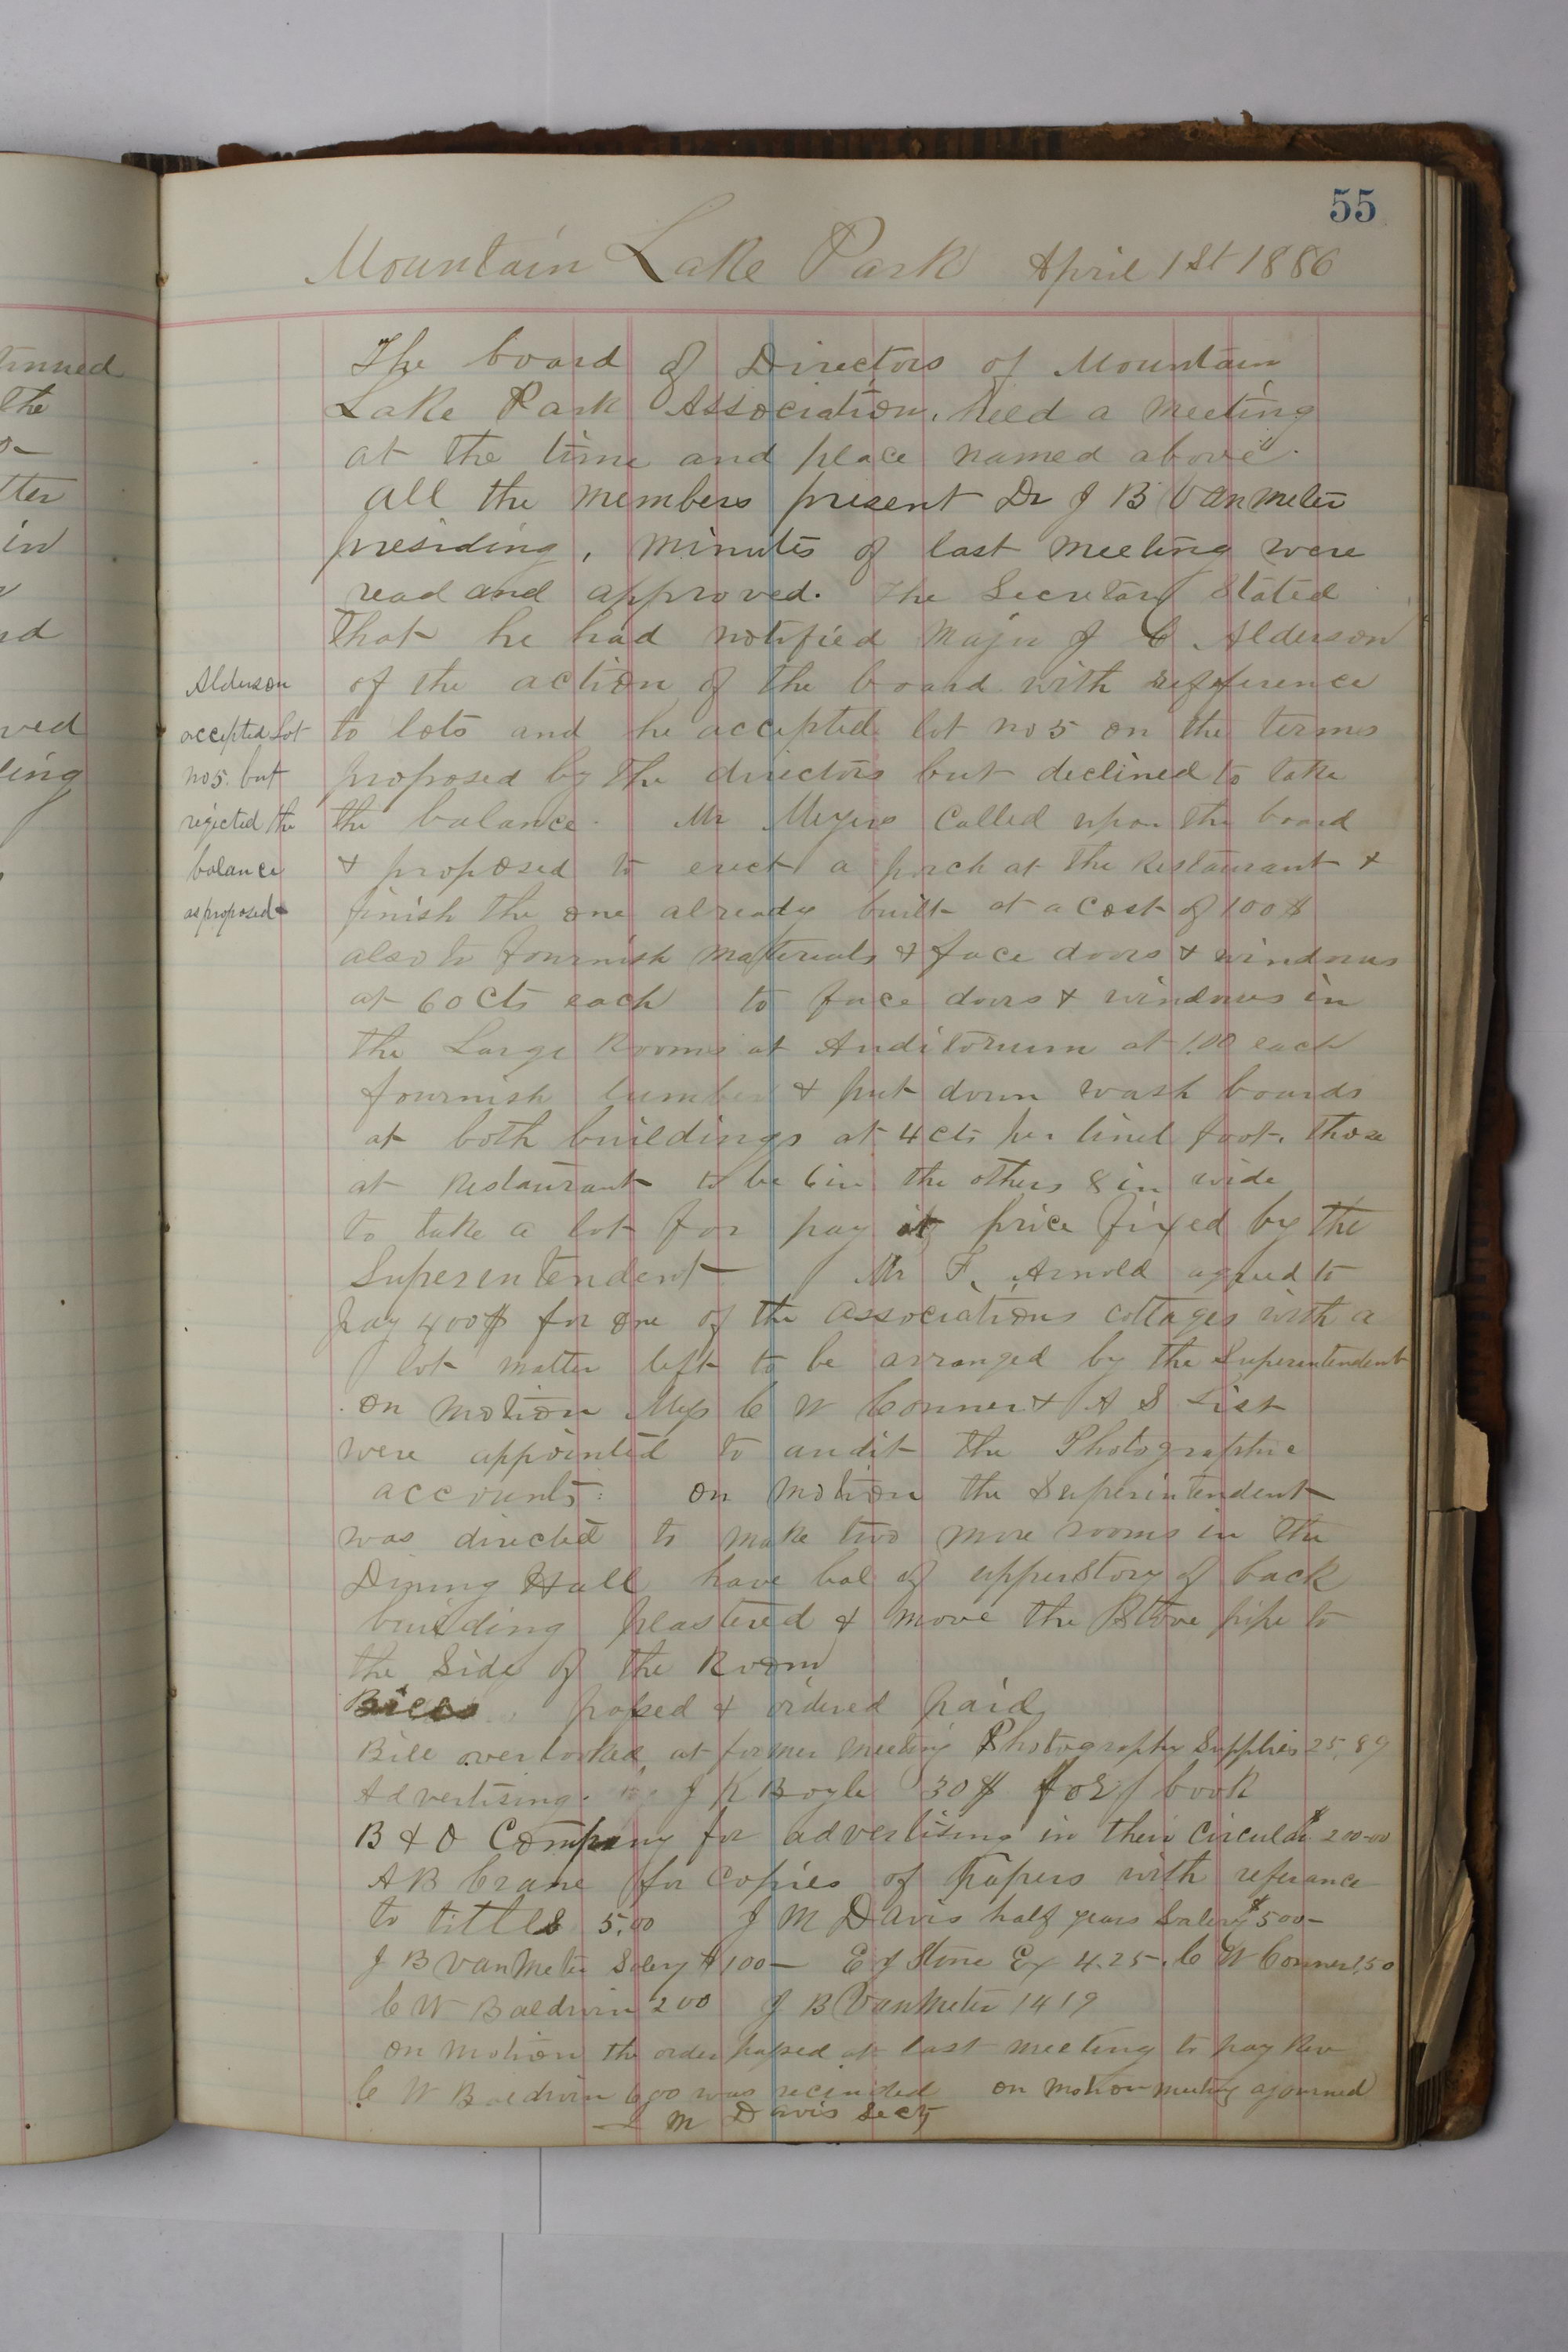 55
Mountain Lake Park April 1st 1886
The board of Directors of Mountain
Lake Park Association, held a meeting
at the time and place named above.
all the members present Dr J B Vanmeter
presiding, minutes of last meeting were
read and approved. The Secretary Stated
That he had notified Major J C Alderson
of the action of the board with refference
to lots and he accepted lot no 5 on the terms
proposed by the directors but declined to take
the balance. Mr Meyers called upon the board
& proposed to erect a porch at the Restaurant &
finish the one already built at a cost of 100$
also to fournish materials & face doors & windows
at 60 cts each to face doors & windows in
the Large Rooms at Auditorium at 1.00 each
fournish lumber & put down wash boards
at both buildings at 4 cts per linel foot. those
at Restaurant to be 6 in the others 8 in wide
to take a lot for pay at price fixed by the
Superentendent Mr F. Arnold agreed to
pay 400$ for one of the associations cottages with a
lot matter left to be arranged by the Superintendent
on motion C W Conner & A S List
were appointed to audit the Photographic
accounts: on motion the Superintendent
was directed to make two more rooms in the
Dining Hall have bal of upper Story of back
building plastered & move the Stove pipe to
the Side of the Room
Bills passed & ordered paid
Bill overlooked at former meeting Photography Supplies 25,89
Advertising J K Boyle 30$ for book
B & O Company for advertising in their circular $200.00
A B Crane for copies of papers with referance
to tittles 5.00 J M Davis half years Salery $500-
J B VanMeter Salery $100- E J Stone Ex 4.25. C W Conner 1,50
C W Baldwin 200 J B VanMeter 1419
on motion the order passed at last meeting to pay Rev
C W Baldwin 600 was recinded on motion meeting ajourned
M Davis Secty
Alderson
accepted Lot
no 5. but
rejected the
balance
as proposed
tinued
the
tter
in
ved